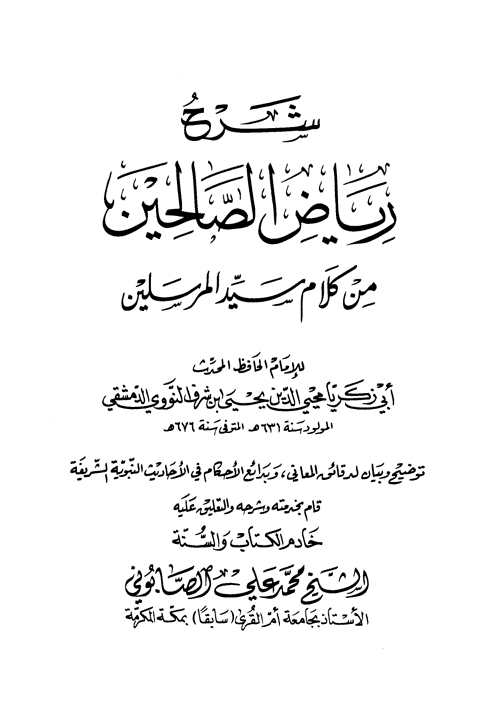 شرح
رياض الصالحين
من كلام سيد المرسلين
للإمام الحافظ المحدث
أبي زكريا محيي الدين يحيى ابن شرف النووي الدمشقي
المولود سنة ٦٣١هـ المتوفى سنة ٦٧٦هـ
توضيح وبيان لدقائق المعاني، وبدائع الأحكام في الأحاديث النبوية الشريفة
قام بخدمته وشرحه والتعليق عليه
خادم الكتاب والسنة
الشيخ محمد علي الصابوني
الأستاذ بجامعة أم القرى (سابقًا) بمكة المكرمة